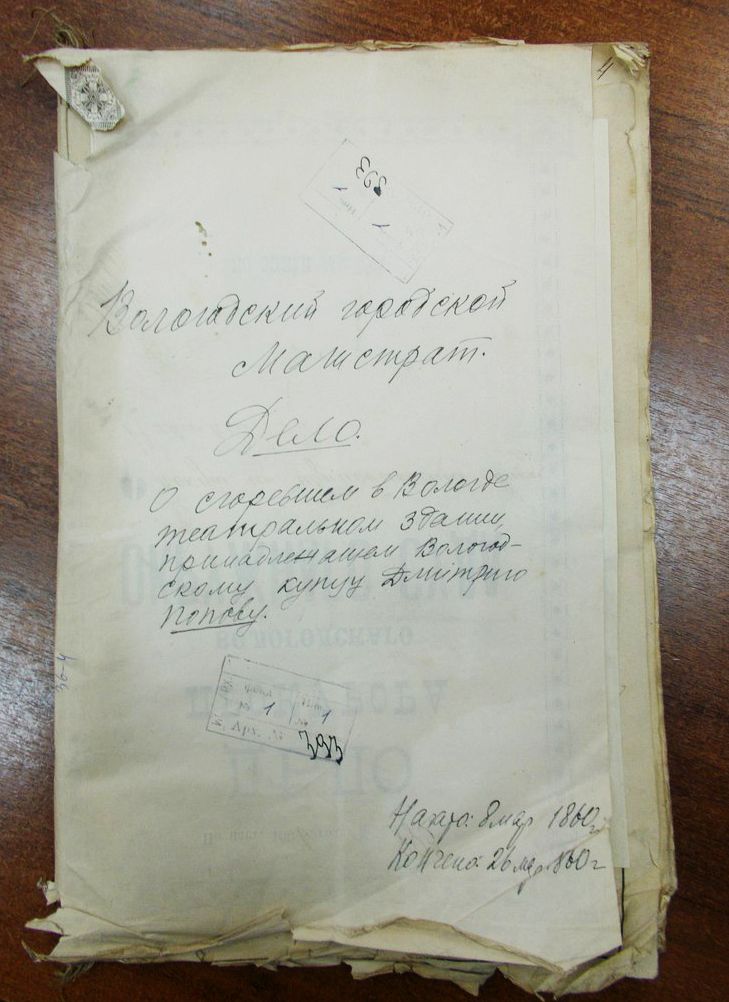 4
393
1
1
Вологодский городской
Магистрат.
Дело.
О сгоревшем в Вологде
театральном здании,
принадлежащем Вологод-
скому купцу Дмитрию
Попову.
1
1
393
36-4
Начато: 8 мар 1860 г
Кончено: 26 мар 1860 г